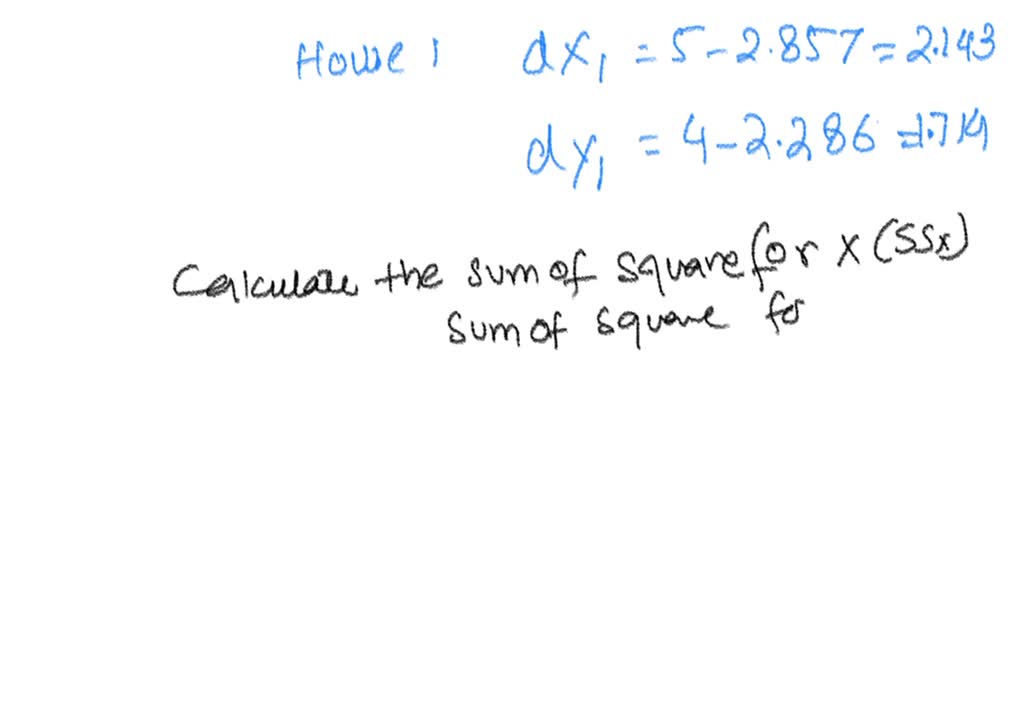 House 1 dx₁ = 5-2.857 = 2.143
dy₁ = 4-2.286 = 1.714
Calculate the sum of square for x (SSx)
sum of square for